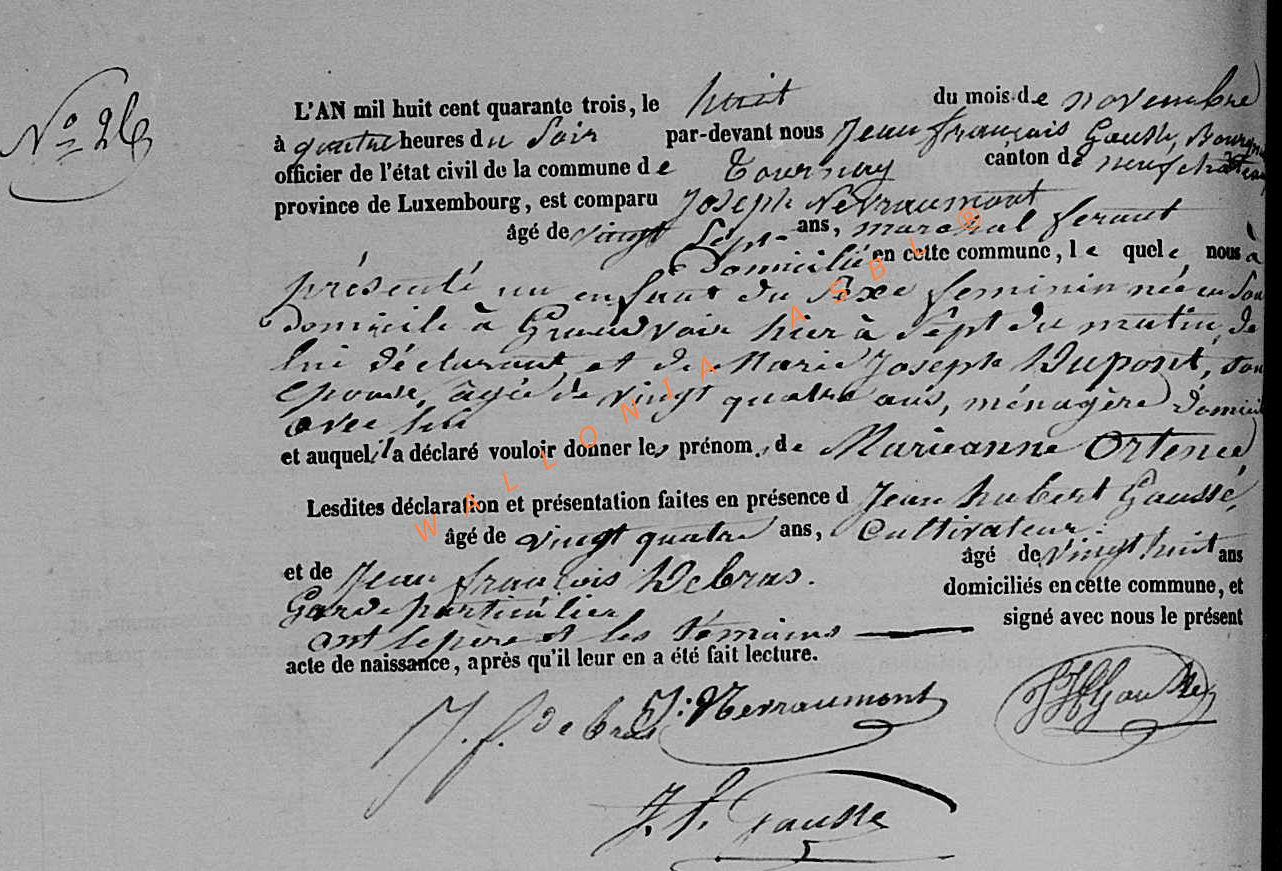 N° 26
L'AN mil huit cent quarante trois, le huit du mois de novembre
à quatre heures du Soir par-devant nous Jean françois Gausse, Bourgm
officier de l'état civil de la commune de Tournay canton de neufchateau
province de Luxembourg, est comparu Joseph Nevraumont
âgé de vingt Sept ans, marechal ferant
Domicilié en cette commune, le quel e nous à
présenté un enfant du Sexe feminin née en Son
domicile à Grandvoir hier à Sept du matin, de
lui déclarant et de Marie Joseph Dupont, son
Epouse, âgée de vingt quatre ans, ménagère Domicil
avec lui
et auquel il a déclaré vouloir donner les prénom, de Marieanne Ortence
Lesdites déclaration et présentation faites en présence d Jean hubert Gaussé,
âgé de vingt quatre ans, Cultivateur
et de Jean françois Debras. âgé de vingt huit ans
Garde particulier domiciliés en cette commune, et
ont le pere et les temoins signé avec nous le présent
acte de naissance, après qu'il leur en a été fait lecture.
J. f. debras J: Nevraumont JHGausse
J. f. Gausse
WALLONIA ASBL ®